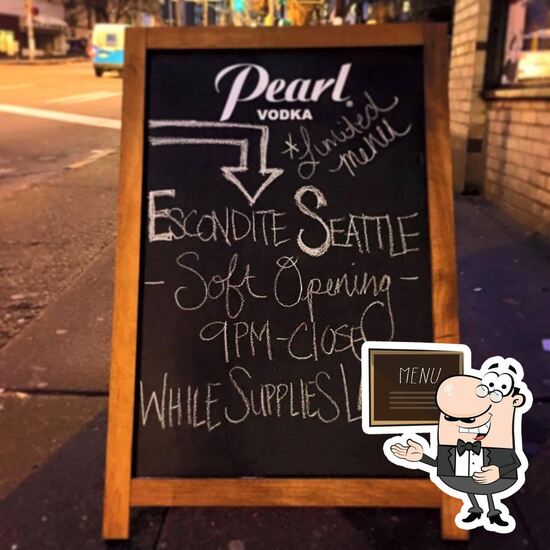 Pearl
VODKA
*Limited
menu
ESCONDITE SEATTLE
- Soft Opening -
9PM-Close
WHILE SUPPLIES
MENU